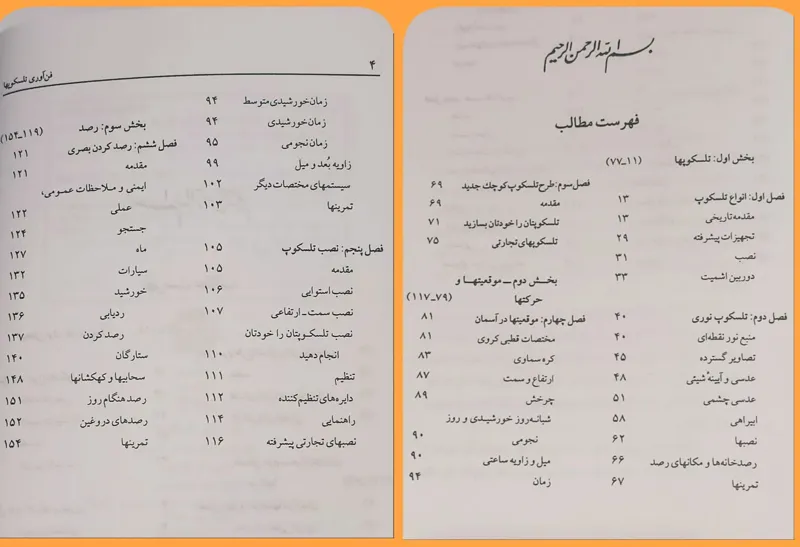 بسم الله الرحمن الرحیم
فهرست مطالب
بخش اول: تلسکوپها (۱۱-۷۷)
فصل اول: انواع تلسکوپ ۱۳
مقدمه تاریخی ۱۳
تجهیزات پیشرفته ۲۹
نصب ۳۱
دوربین اشمیت ۳۳
فصل دوم: تلسکوپ نوری ۴۰
منبع نور نقطه‌ای ۴۰
تصاویر گسترده ۴۵
عدسی و آیینهٔ شیئی ۴۸
عدسی چشمی ۵۱
ابیراهی ۵۸
نصبها ۶۲
رصدخانه‌ها و مکانهای رصد ۶۶
تمرینها ۶۷
فصل سوم: طرح تلسکوپ کوچک جدید ۶۹
مقدمه ۶۹
تلسکوپتان را خودتان بسازید ۷۱
تلسکوپهای تجارتی ۷۵
بخش دوم ـ موقعیتها و
حرکتها (۷۹-۱۱۷)
فصل چهارم: موقعیتها در آسمان ۸۱
مختصات قطبی کروی ۸۱
کره سماوی ۸۳
ارتفاع و سمت ۸۷
چرخش ۸۹
شبانه‌روز خورشیدی و روز
نجومی ۹۰
میل و زاویه ساعتی ۹۰
زمان ۹۴
۴
فن‌آوری تلسکوپها
زمان خورشیدی متوسط ۹۴
زمان خورشیدی ۹۴
زمان نجومی ۹۵
زاویه بُعد و میل ۹۹
سیستمهای مختصات دیگر ۱۰۲
تمرینها ۱۰۳
فصل پنجم: نصب تلسکوپ ۱۰۵
مقدمه ۱۰۵
نصب استوایی ۱۰۶
نصب سمت-ارتفاعی ۱۰۷
نصب تلسکوپتان را خودتان
انجام دهید ۱۱۰
تنظیم ۱۱۱
دایره‌های تنظیم‌کننده ۱۱۲
راهنمایی ۱۱۴
نصبهای تجارتی پیشرفته ۱۱۶
بخش سوم: رصد (۱۱۹-۱۵۴)
فصل ششم: رصد کردن بصری ۱۲۱
مقدمه ۱۲۱
ایمنی و ملاحظات عمومی،
عملی ۱۲۲
جستجو ۱۲۴
ماه ۱۲۷
سیارات ۱۳۲
خورشید ۱۳۵
ردیابی ۱۳۶
رصد کردن ۱۳۷
ستارگان ۱۴۰
سحابیها و کهکشانها ۱۴۸
رصد هنگام روز ۱۵۱
رصدهای دروغین ۱۵۲
تمرینها ۱۵۴